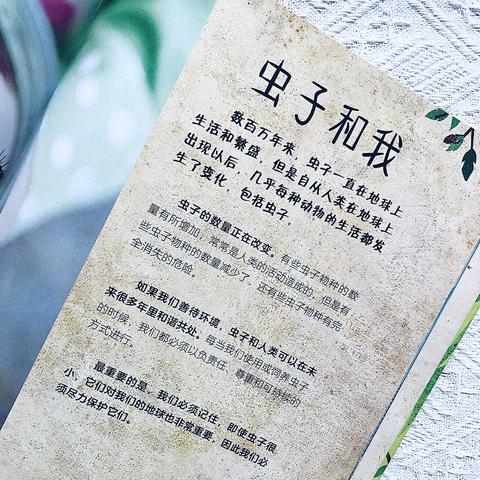 虫子和我
数百万年来，虫子一直在地球上
生活和繁盛，但是自从人类在地球上
出现以后，几乎每种动物的生活都发
生了变化，包括虫子。
虫子的数量正在改变。有些虫子物种的数
量有所增加，常常是人类的活动造成的，但是有
些虫子物种的数量减少了，还有些虫子物种有完
全消失的危险。
如果我们善待环境，虫子和人类可以在未
来很多年里和谐共处。每当我们使用或饲养虫子
的时候，我们都必须以负责任、尊重和可持续的
方式进行。
最重要的是，我们必须记住，即使虫子很
小，它们对我们的地球也非常重要，因此我们必
须尽力保护它们。